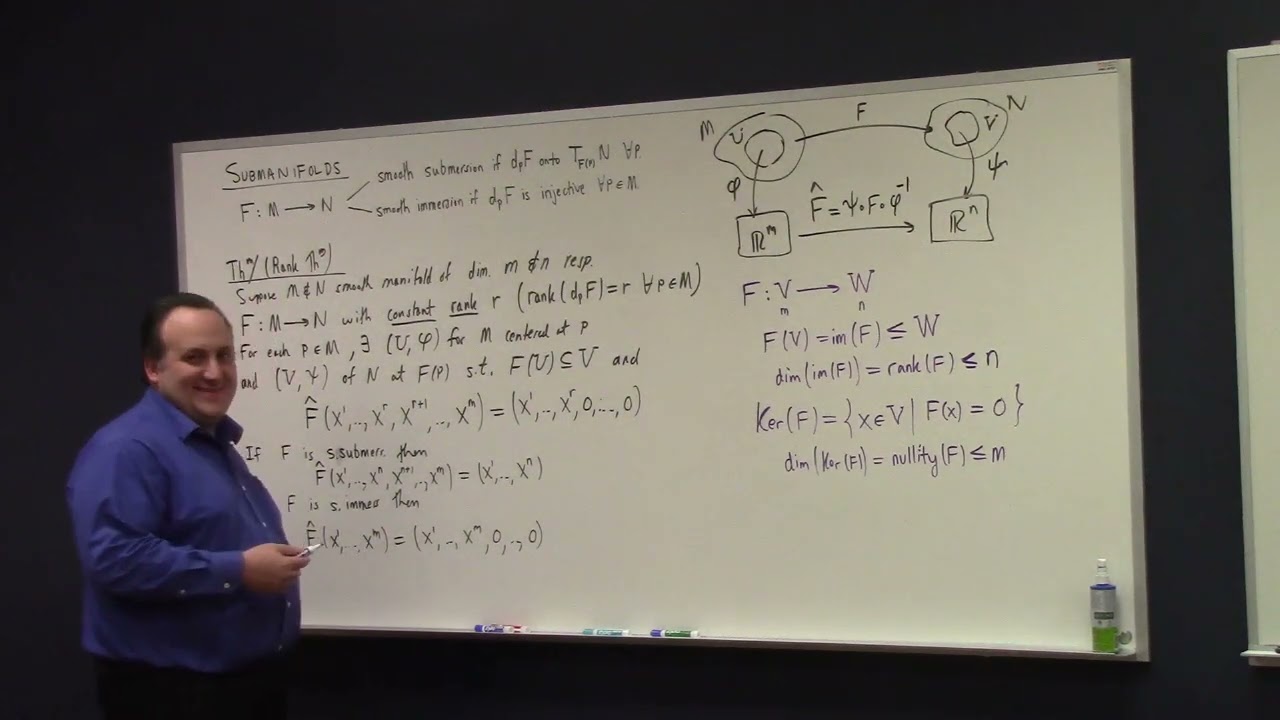 SUBMANIFOLDS
F : M → N
smooth submersion if dₚF onto T_F(p) N ∀p
smooth immersion if dₚF is injective ∀p∈M
Thᵐ/ (Rank Thᵐ)
Suppose M & N smooth manifold of dim. m & n resp.
F : M → N with constant rank r (rank(dₚF) = r ∀p∈M)
For each p∈M, ∃ (U, φ) for M centered at p
and (V, ψ) of N at F(p) s.t. F(U) ⊆ V and
F̂(x¹,..,xʳ,xʳ⁺¹,..,xᵐ) = (x¹,..,xʳ,0,...,0)
If F is s.submers. then
F̂(x¹,..,xⁿ,xⁿ⁺¹,..,xᵐ) = (x¹,..,xⁿ)
F is s. immers then
F̂(x¹,..,xᵐ) = (x¹,..,xᵐ,0,..,0)
M U F V N
φ ψ
ℝᵐ F̂ = ψ∘F∘φ⁻¹ ℝⁿ
F : V → W
m n
F(V) = im(F) ≤ W
dim(im(F)) = rank(F) ≤ n
Ker(F) = {x∈V | F(x) = 0}
dim(Ker(F)) = nullity(F) ≤ m